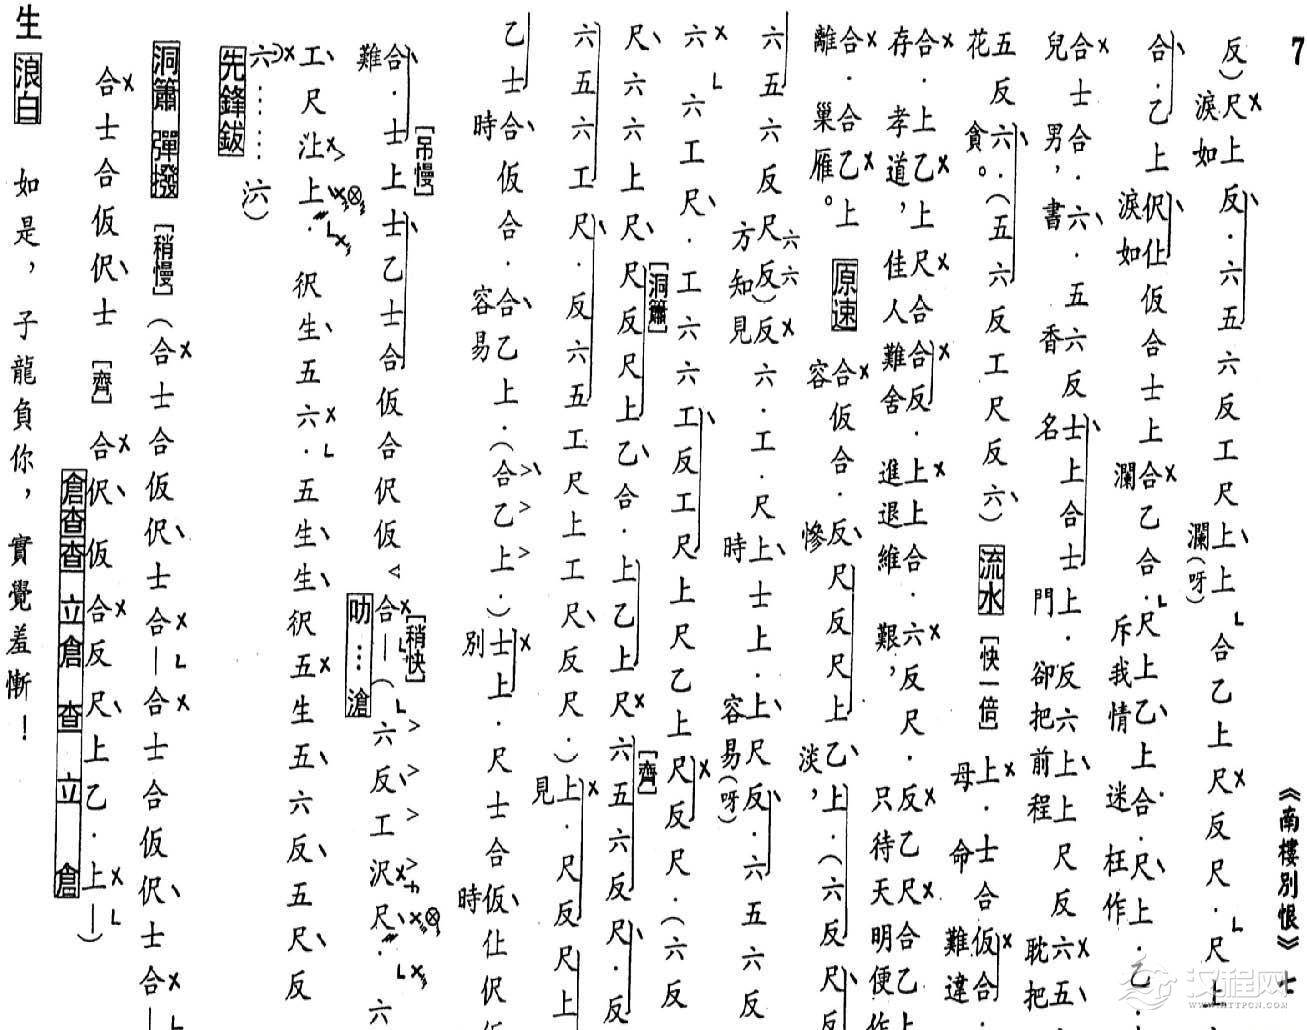 7
《南樓別恨》 七
反）尺上反．六五六反工尺上上合乙上尺反尺．尺上
淚如 瀾（呀）
合．乙上伬仩仮合士上合乙合．尺上乙上合．尺上．乙
淚如 瀾 斥我情 迷 枉作
合士合．六．五六反士上合士上．反六上上尺反六五
兒 男，書 香 名 門 卻把前程 耽把
五反六．（五六反工尺反六） 流水 [快一倍] 上．士合仮合．
花 貪。 母 命 難違
合．上乙上尺合合反．上上合．六反尺．反乙尺合乙上
存 孝道，佳人難舍 進退維 艱， 只待天明便作
合．合乙上 原速 合仮合．反尺反尺上乙上．（六反尺反
離 巢雁。 容 慘 淡，
六五六反尺六反六）反六．工．尺上士上．上尺反．六五六反
方知見 時 容易（呀）
六六工尺．工六六工反工尺上尺乙上尺反尺．（六反
尺六六上尺[洞簫]尺反尺上乙合．上乙上尺六五六反尺．反
[齊]
六五六工尺．反六五工尺上工尺反尺．）上．尺反尺上
見
乙士合仮合．合乙上．（合乙上．）士上．尺士合仮仩伬
時 容易 別 時
合．士上士乙士合仮合伬仮合—（六反工沢尺．六
難 [吊慢] [稍快] 叻…滄
工尺㳅上．䄷生五六．五生生䄷五生五六反五尺反
六……㳅）
先鋒鈸
洞簫 彈撥 [稍慢]（合士合仮伬士合—合士合仮伬士合—
合士合仮伬士 [齊] 合伬仮合反尺上乙．上—）
倉查查立倉 查 立 倉
生 浪白 如是，子龍負你，實覺羞慚！
汉程网
WWW.HTTPCN.COM